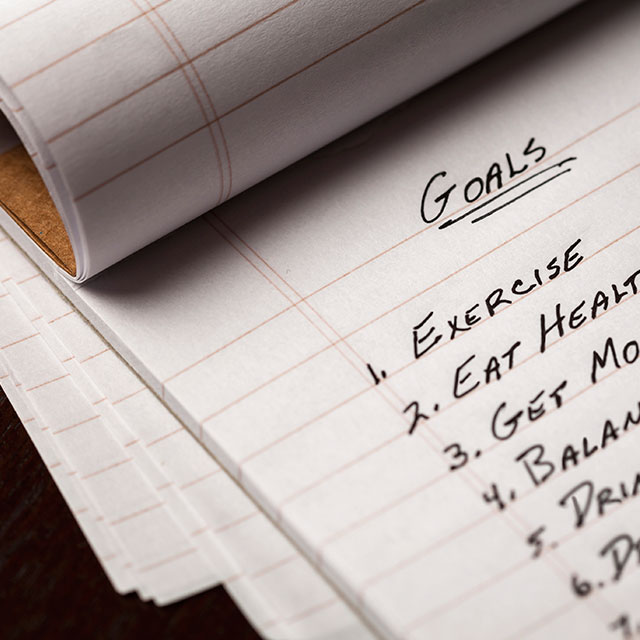 GOALS
1. EXERCISE
2. EAT HEALT
3. GET MO
4. BALAN
5. DRIN
6. D
7.